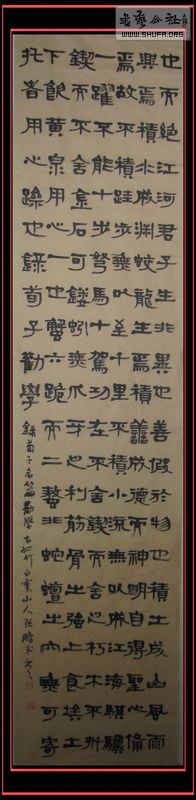 書藝公社
WWW.SHUFA.ORG
也而絕江河君子生非異也善假於物也積土成山風雨
興焉積水成淵蛟龍生焉積善成德而神明自得聖心
焉故不積跬步無以至千里不積小流無以成江海騏驥
一躍不能十步駑馬十駕功在不舍鍥而舍之朽木不折
鍥而不舍金石可鏤蚓無爪牙之利筋骨之強上食埃土
下飲黃泉用心一也蟹六跪而二螯非蛇蟺之穴無可寄
托者用心躁也錄荀子勸學
錄荀子名篇勸學 白雲山人